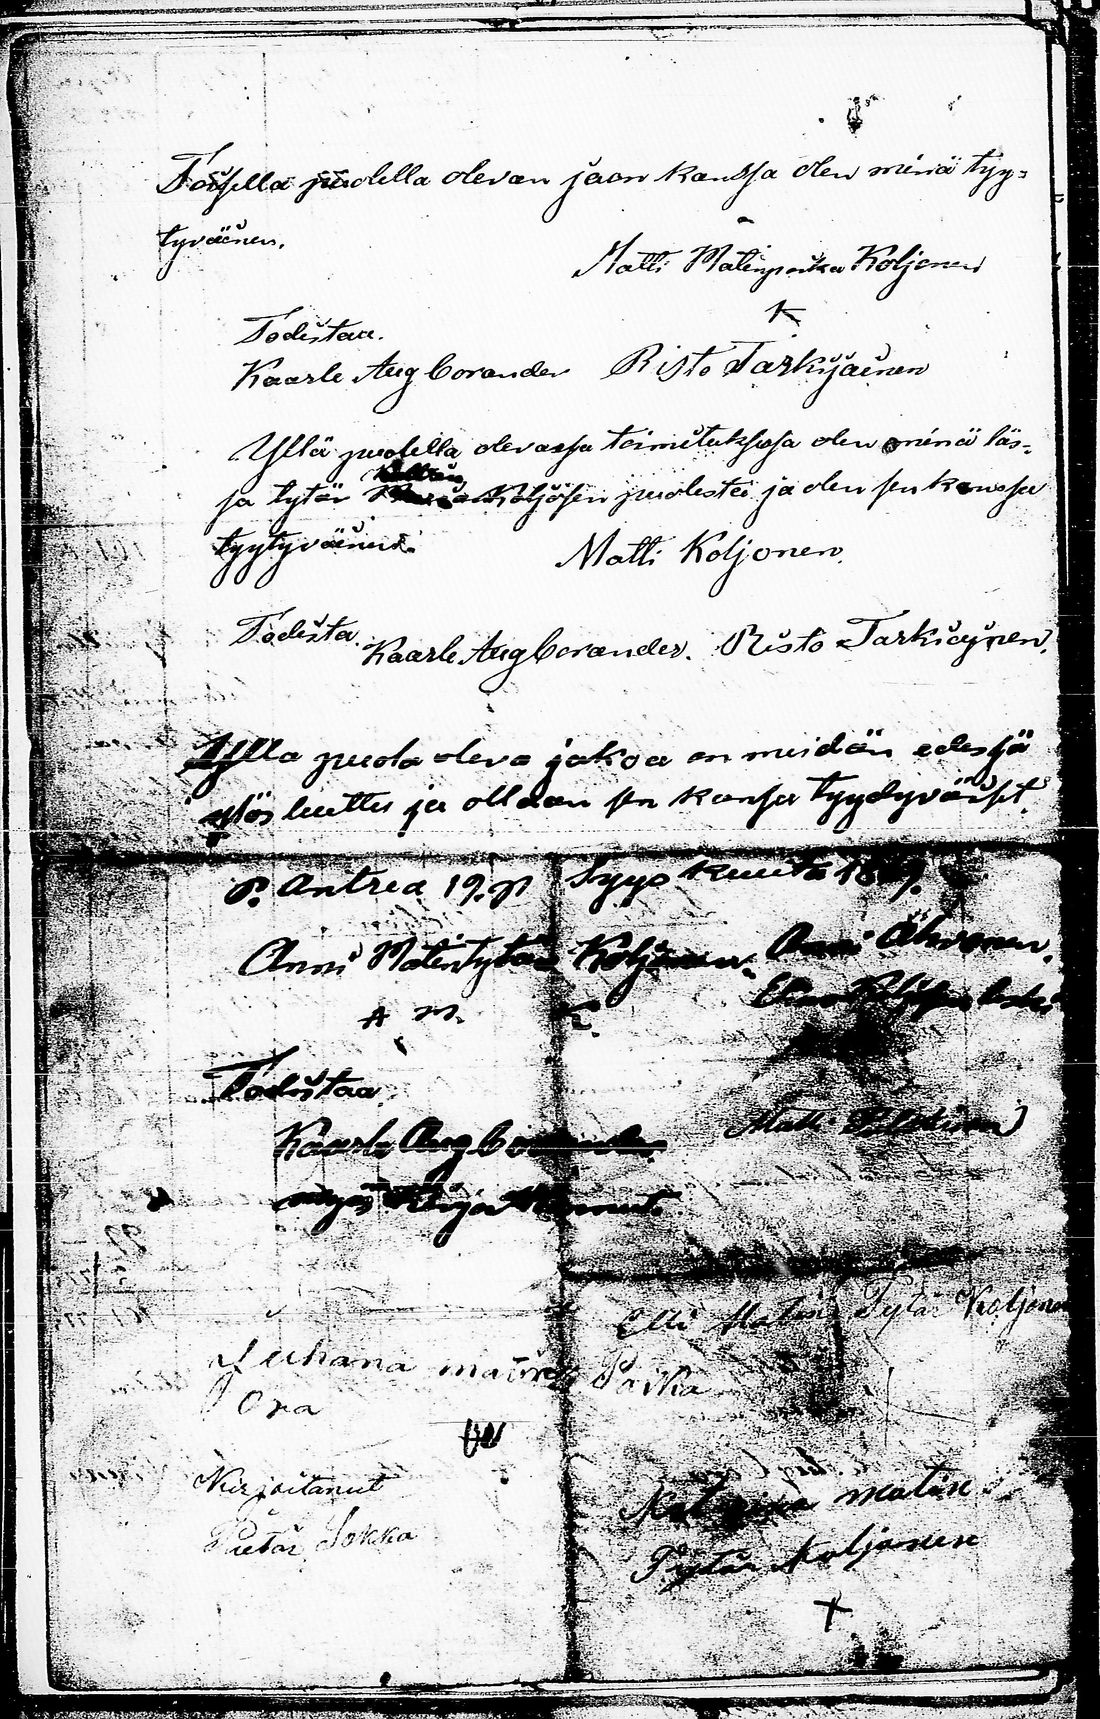 Toisella puolella olevan jaon kanssa olen minä tyy=
tyväinen.
Matti Matinpoika Koljonen
K
Todistaa.
Kaarle Aug Corander Risto Tarkijäinen
Yllä puolella olevassa toimituksesa olen minä läs-
ja tytär Koljosen puolesta ja olen sen kanssa
tyytyväinen.
Matti Koljonen.
Todista. Kaarle Aug Corander. Risto Tarkiaynen.
Ylla puola oleva jakoa on meidän edessä
ylös luettu ja ollaan sen kansa tyydyväiset.
P. Antrea 19. p Syys kuuta 18
Anni Matintytär Koljonen. Anni Ahvonen.
A M. K.
Todistaa
Kaarle Aug Corander
Matti
Elli Matin Tytär Koljone
Juhana matin Poika
Ora
Kirjoitanut
Pietar Sokka
Katarina matin
Tytär Koljonen
+